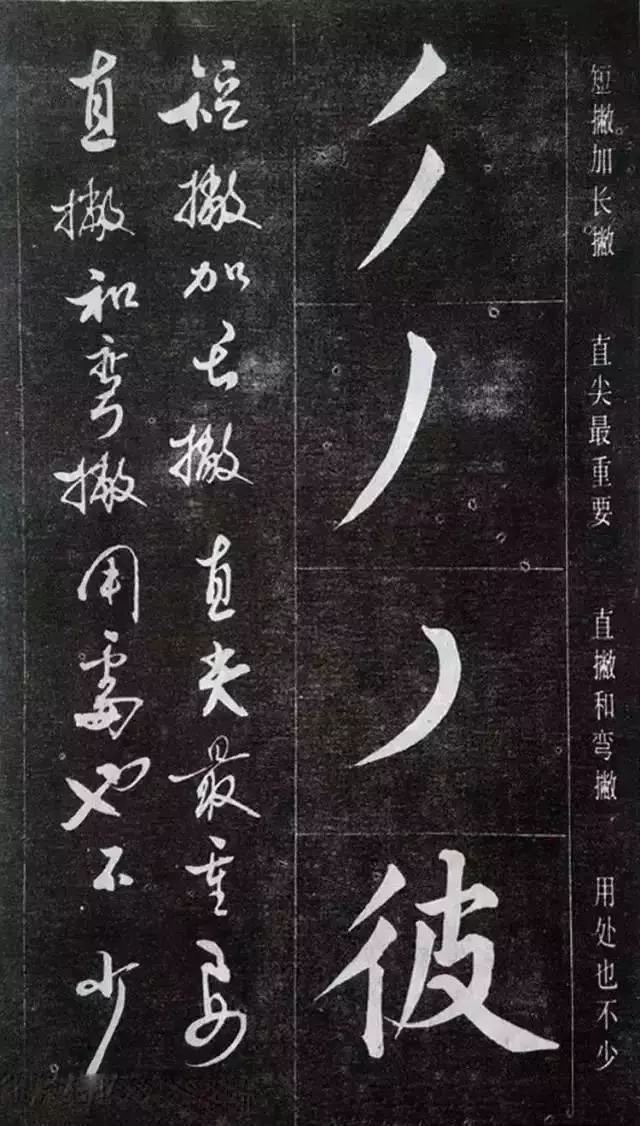 短撇加长撇 直尖最重要 直撇和弯撇 用处也不少
丿
丿
丿
丿
彼
短撇加长撇直尖最重要
直撇和弯撇用處也不少